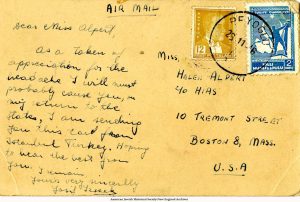 AIR MAIL
Dear Miss Alpert,
As a token of
appreciation for the
headache I will most
probably cause you, on
my return to the
States, I am sending
you this card from
Istanbul Turkey. Hoping
to hear the best from
you. I remain
Yours very sincerely
12
BEYOĞLU
2
Miss,
HELEN ALPERT
℅ HIAS
10 TREMONT STREET
BOSTON 8, MASS.
U.S.A
American Jewish Historical Society New England Archives